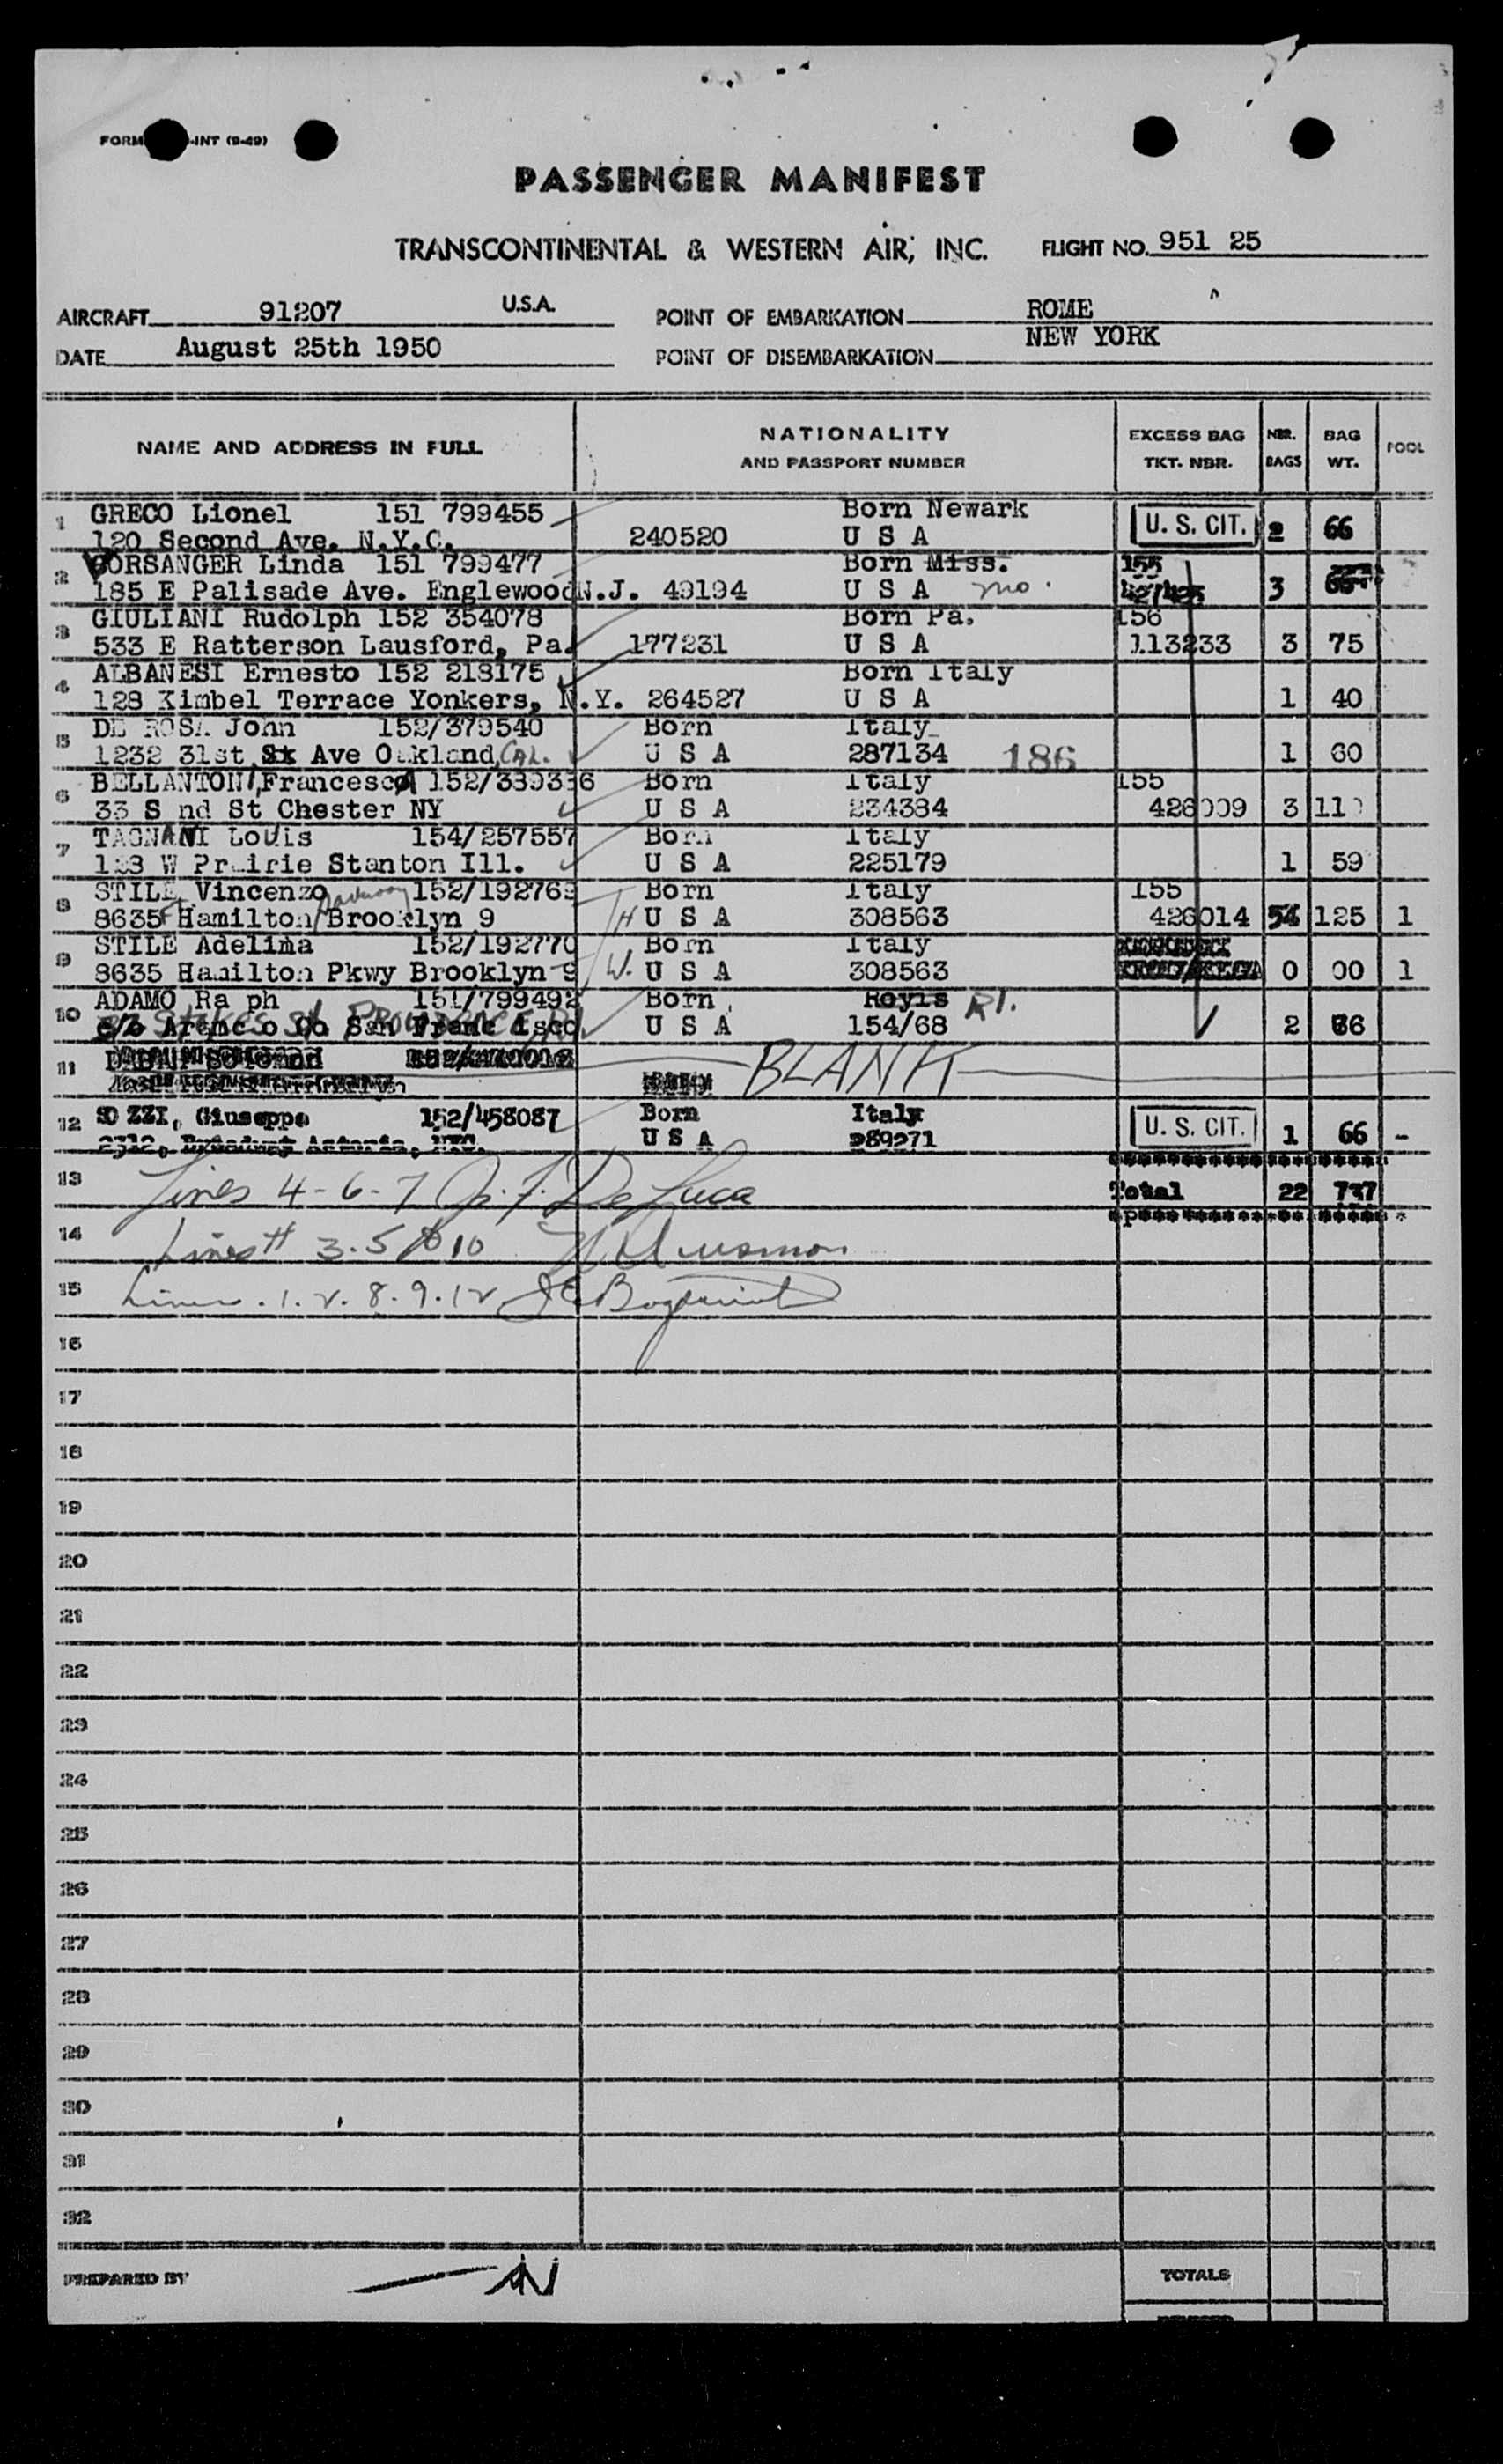 FORM -INT (9-49)
PASSENGER MANIFEST
TRANSCONTINENTAL & WESTERN AIR, INC. FLIGHT NO. 951 25
AIRCRAFT 91207 U.S.A. POINT OF EMBARKATION ROME
DATE August 25th 1950 POINT OF DISEMBARKATION NEW YORK
NAME AND ADDRESS IN FULL NATIONALITY AND PASSPORT NUMBER EXCESS BAG TKT. NBR. NBR. BAGS BAG WT. POOL
1 GRECO Lionel 151 799455 Born Newark U. S. CIT. 2 66
120 Second Ave. N.Y.C. 240520 U S A
2 BORSANGER Linda 151 799477 Born Miss. 155
185 E Palisade Ave. Englewood N.J. 49194 U S A mo. 3
3 GIULIANI Rudolph 152 354078 Born Pa. 156
533 E Ratterson Lausford, Pa. 177231 U S A 113233 3 75
4 ALBANESI Ernesto 152 218175 Born Italy
128 Kimbel Terrace Yonkers, N.Y. 264527 U S A 1 40
5 DE ROSA John 152/379540 Born Italy
1232 31st St Ave Oakland CAL. U S A 287134 186 1 60
6 BELLANTONI Francesca 152/339336 Born Italy 155
33 S nd St Chester NY U S A 234384 426009 3 110
7 TAGNANI Louis 154/257557 Born Italy
128 W Prairie Stanton Ill. U S A 225179 1 59
8 STILE Vincenzo 152/192769 Born Italy 155
8635 Ft Hamilton Parkway Brooklyn 9 H U S A 308563 426014 54 125 1
9 STILE Adelina 152/192770 Born Italy
8635 Hamilton Pkwy Brooklyn 9 W. U S A 308563 0 00 1
10 ADAMO Ra ph 151/799492 Born Royis RI.
c/o Aramco Co San Francisco U S A 154/68 2 66
11 BLANK
12 SOZZI, Giuseppe 152/458087 Born Italy U. S. CIT. 1 66 -
2312, Broadway Astoria, NYC. U S A 289271
13 Lines 4-6-7 J. F. De Luca Total 22 737
14 Lines # 3.5 10
15 Lines. 1. 2. 8. 9. 12
16
17
18
19
20
21
22
23
24
25
26
27
28
29
30
31
32
PREPARED BY TOTALS